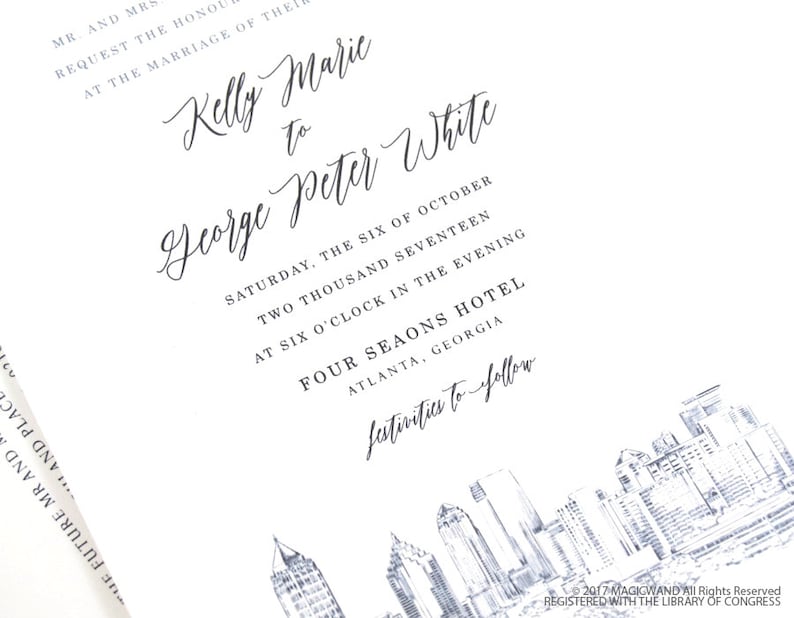 MR. AND MRS.
REQUEST THE HONOUR
AT THE MARRIAGE OF THEIR
Kelly Marie
to
George Peter White
SATURDAY, THE SIX OF OCTOBER
TWO THOUSAND SEVENTEEN
AT SIX O'CLOCK IN THE EVENING
FOUR SEAONS HOTEL
ATLANTA, GEORGIA
festivities to follow
FUTURE MR AND
AND PLACE
© 2017 MAGICWAND All Rights Reserved
REGISTERED WITH THE LIBRARY OF CONGRESS